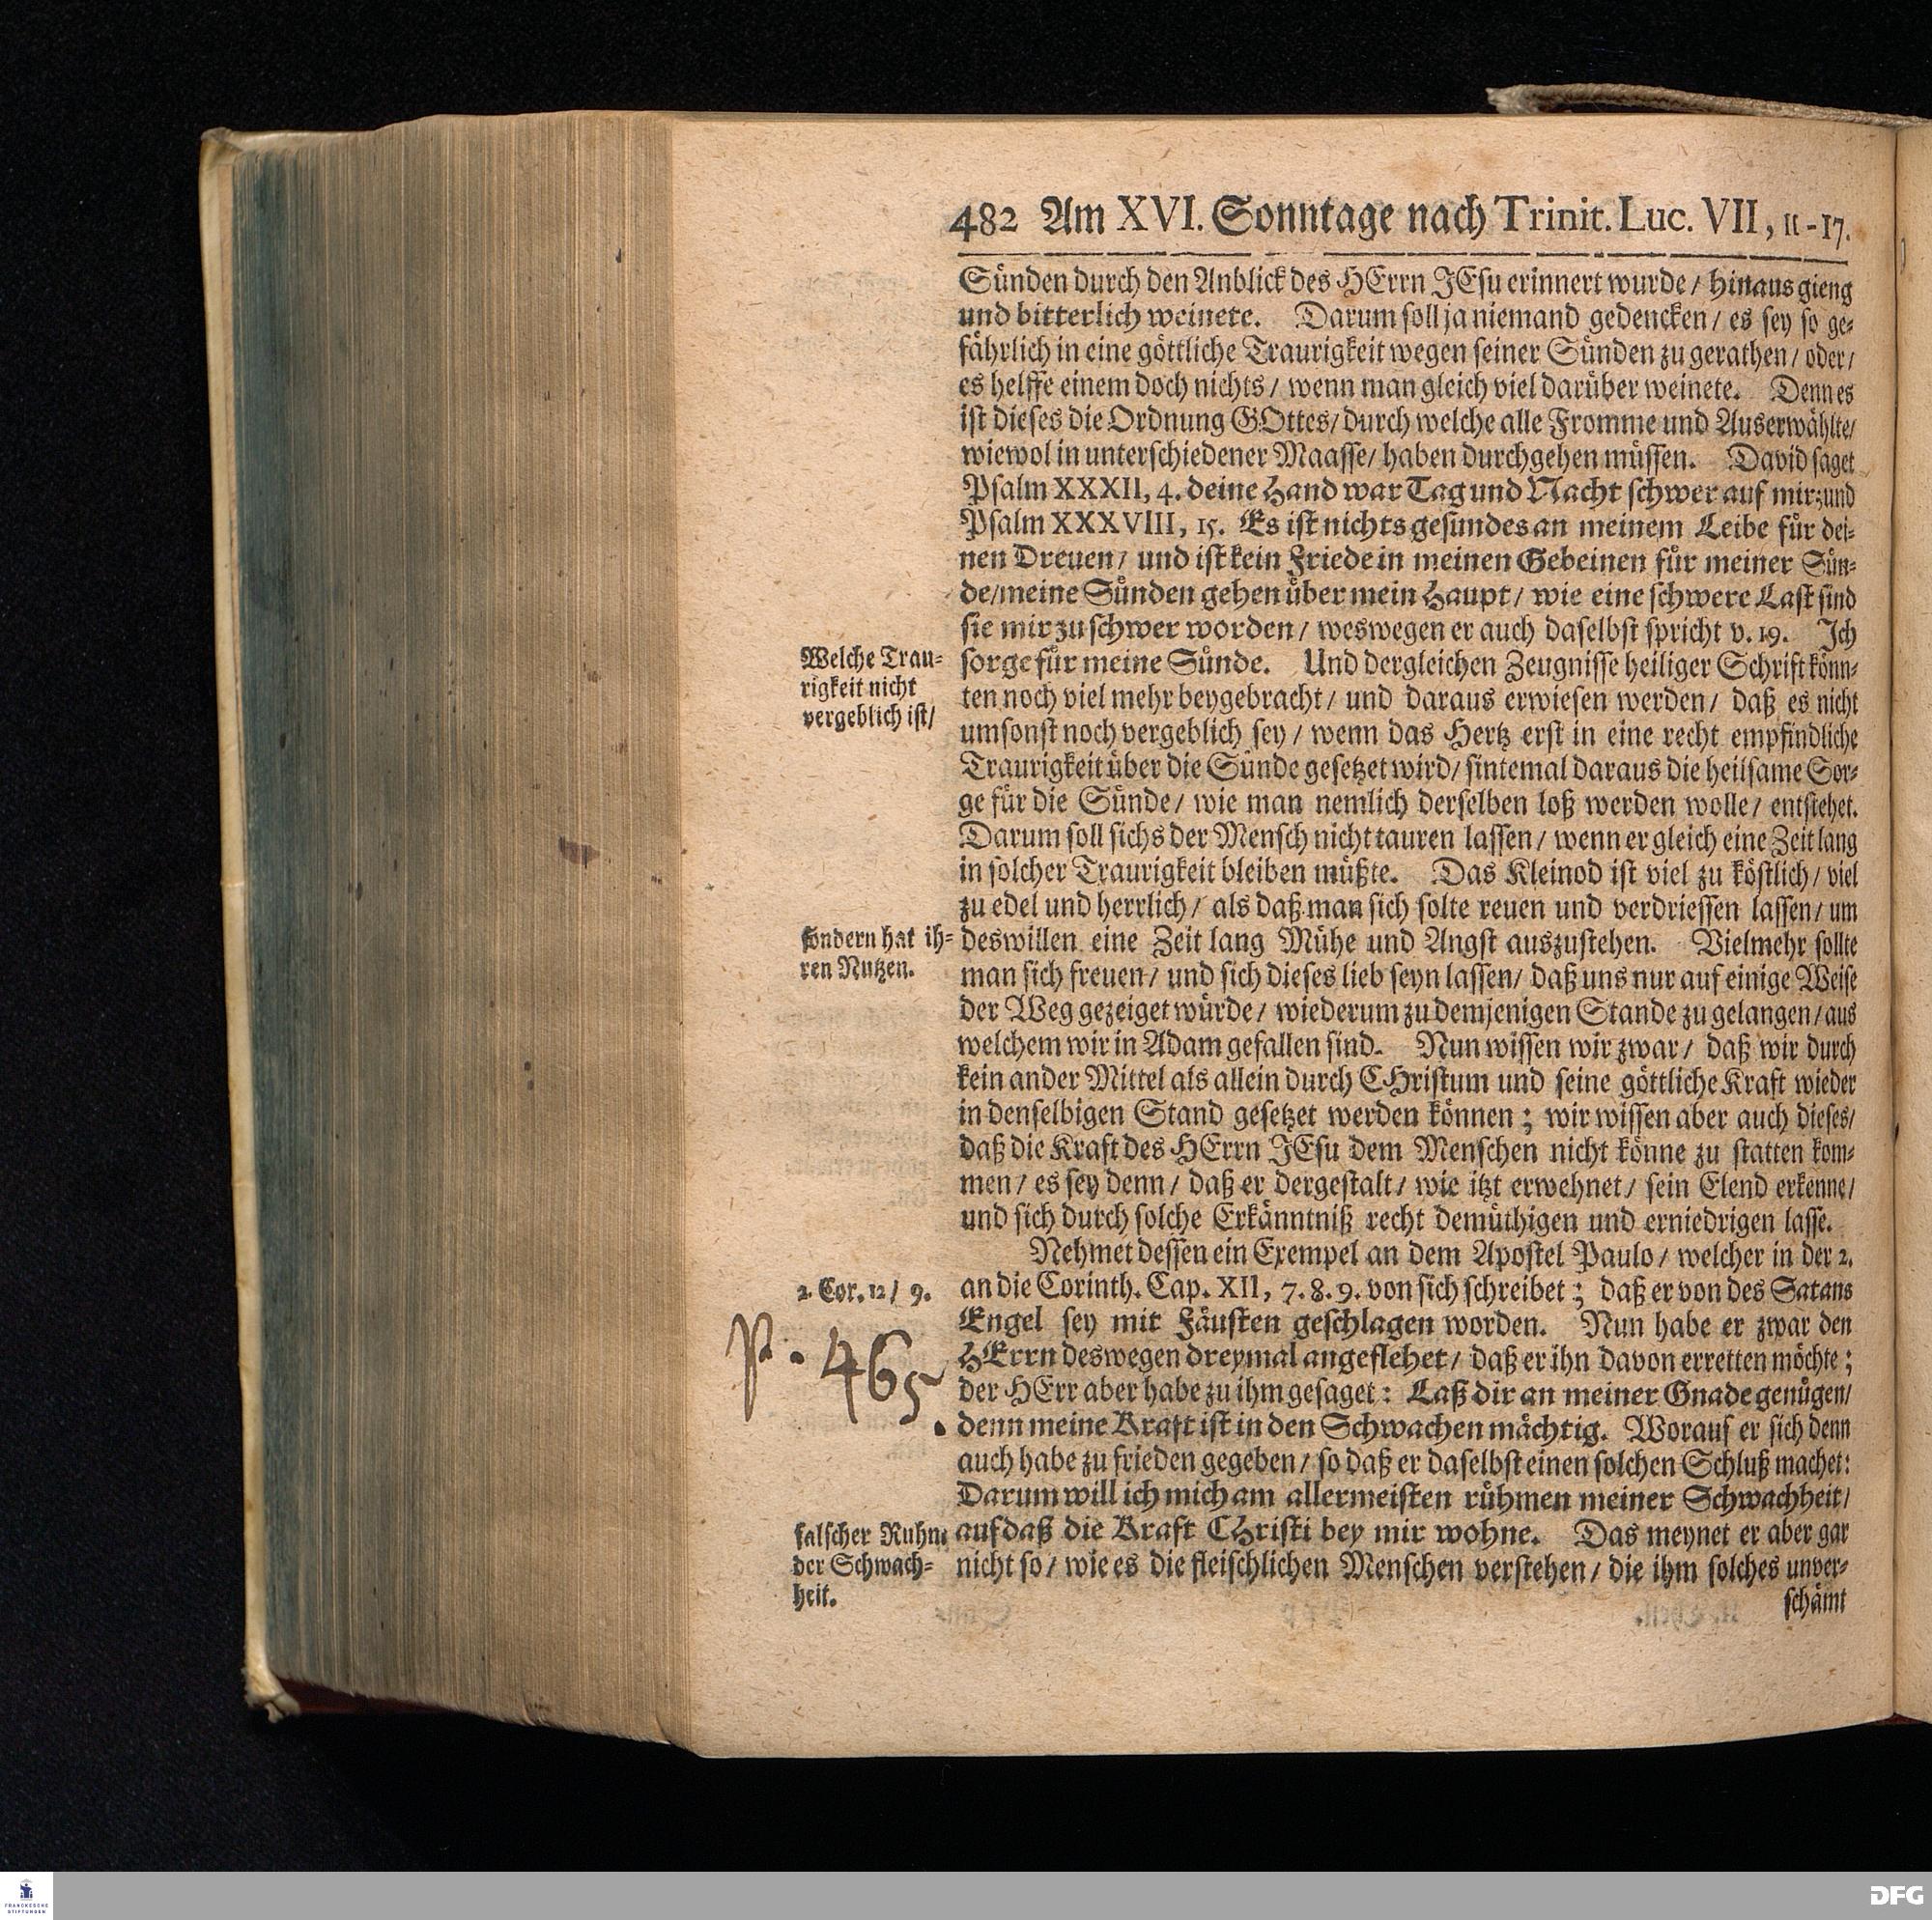 482 Am XVI. Sonntage nach Trinit. Luc. VII, 11-17.
Sünden durch den Anblick des HErrn JEsu erinnert wurde/ hinaus gieng
und bitterlich weinete. Darum soll ja niemand gedencken/ es sey so ge-
fährlich in eine göttliche Traurigkeit wegen seiner Sünden zu gerathen/ oder/
es helffe einem doch nichts/ wenn man gleich viel darüber weinete. Denn es
ist dieses die Ordnung GOttes/ durch welche alle Fromme und Auserwählte/
wiewol in unterschiedener Maasse/ haben durchgehen müssen. David saget
Psalm XXXII, 4. deine Hand war Tag und Nacht schwer auf mir; und
Psalm XXXVIII, 15. Es ist nichts gesundes an meinem Leibe für dei-
nen Dreuen/ und ist kein Friede in meinen Gebeinen für meiner Sün-
de/ meine Sünden gehen über mein Haupt/ wie eine schwere Last sind
sie mir zu schwer worden/ weswegen er auch daselbst spricht v. 19. Ich
Welche Trau-
rigkeit nicht
vergeblich ist/
sorge für meine Sünde. Und dergleichen Zeugnisse heiliger Schrift könn-
ten noch viel mehr beygebracht/ und daraus erwiesen werden/ daß es nicht
umsonst noch vergeblich sey/ wenn das Hertz erst in eine recht empfindliche
Traurigkeit über die Sünde gesetzet wird/ sintemal daraus die heilsame Sor-
ge für die Sünde/ wie man nemlich derselben loß werden wolle/ entstehet.
Darum soll sichs der Mensch nicht tauren lassen/ wenn er gleich eine Zeit lang
in solcher Traurigkeit bleiben müßte. Das Kleinod ist viel zu köstlich/ viel
zu edel und herrlich/ als daß man sich solte reuen und verdriessen lassen/ um
sondern hat ih-
ren Nutzen.
deswillen eine Zeit lang Mühe und Angst auszustehen. Vielmehr sollte
man sich freuen/ und sich dieses lieb seyn lassen/ daß uns nur auf einige Weise
der Weg gezeiget würde/ wiederum zu demjenigen Stande zu gelangen/ aus
welchem wir in Adam gefallen sind. Nun wissen wir zwar/ daß wir durch
kein ander Mittel als allein durch CHristum und seine göttliche Kraft wieder
in denselbigen Stand gesetzet werden können; wir wissen aber auch dieses/
daß die Kraft des HErrn JEsu dem Menschen nicht könne zu statten kom-
men/ es sey denn/ daß er dergestalt/ wie itzt erwehnet/ sein Elend erkenne/
und sich durch solche Erkänntniß recht demüthigen und erniedrigen lasse.
Nehmet dessen ein Exempel an dem Apostel Paulo/ welcher in der 2.
2. Cor. 12/ 9.
an die Corinth. Cap. XII, 7. 8. 9. von sich schreibet; daß er von des Satans
Engel sey mit Fäusten geschlagen worden. Nun habe er zwar den
p. 465.
HErrn deswegen dreymal angeflehet/ daß er ihn davon erretten möchte;
der HErr aber habe zu ihm gesaget: Laß dir an meiner Gnade genügen/
denn meine Kraft ist in den Schwachen mächtig. Worauf er sich denn
auch habe zu frieden gegeben/ so daß er daselbst einen solchen Schluß machet:
Darum will ich mich am allermeisten rühmen meiner Schwachheit/
falscher Ruhm
der Schwach-
heit.
auf daß die Kraft CHristi bey mir wohne. Das meynet er aber gar
nicht so/ wie es die fleischlichen Menschen verstehen/ die ihm solches unver-
schämt
FRANCKESCHE
STIFTUNGEN
DFG